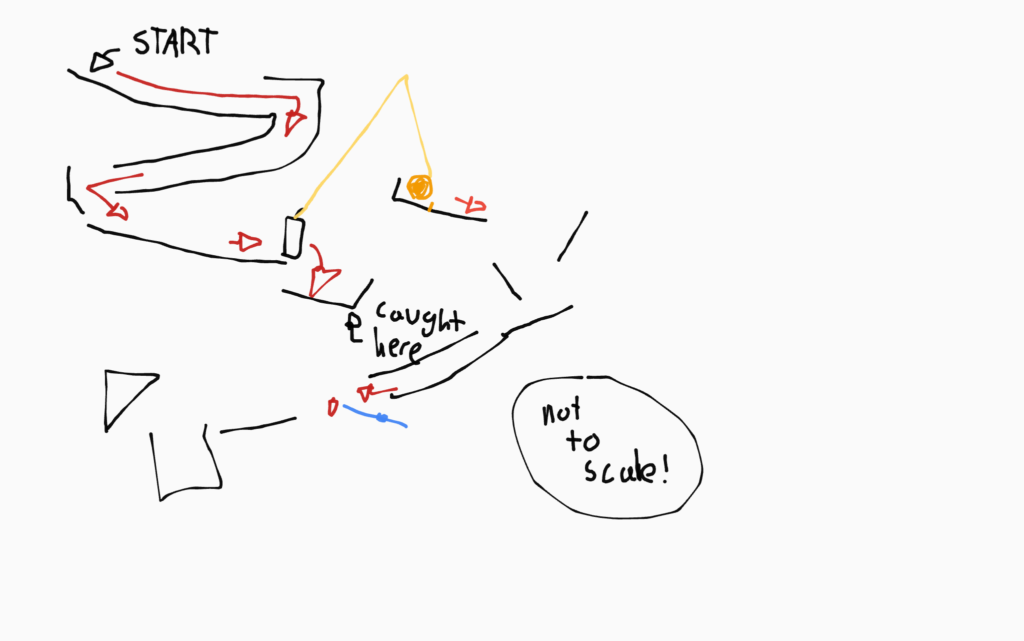 START
caught
here
not
to
scale!